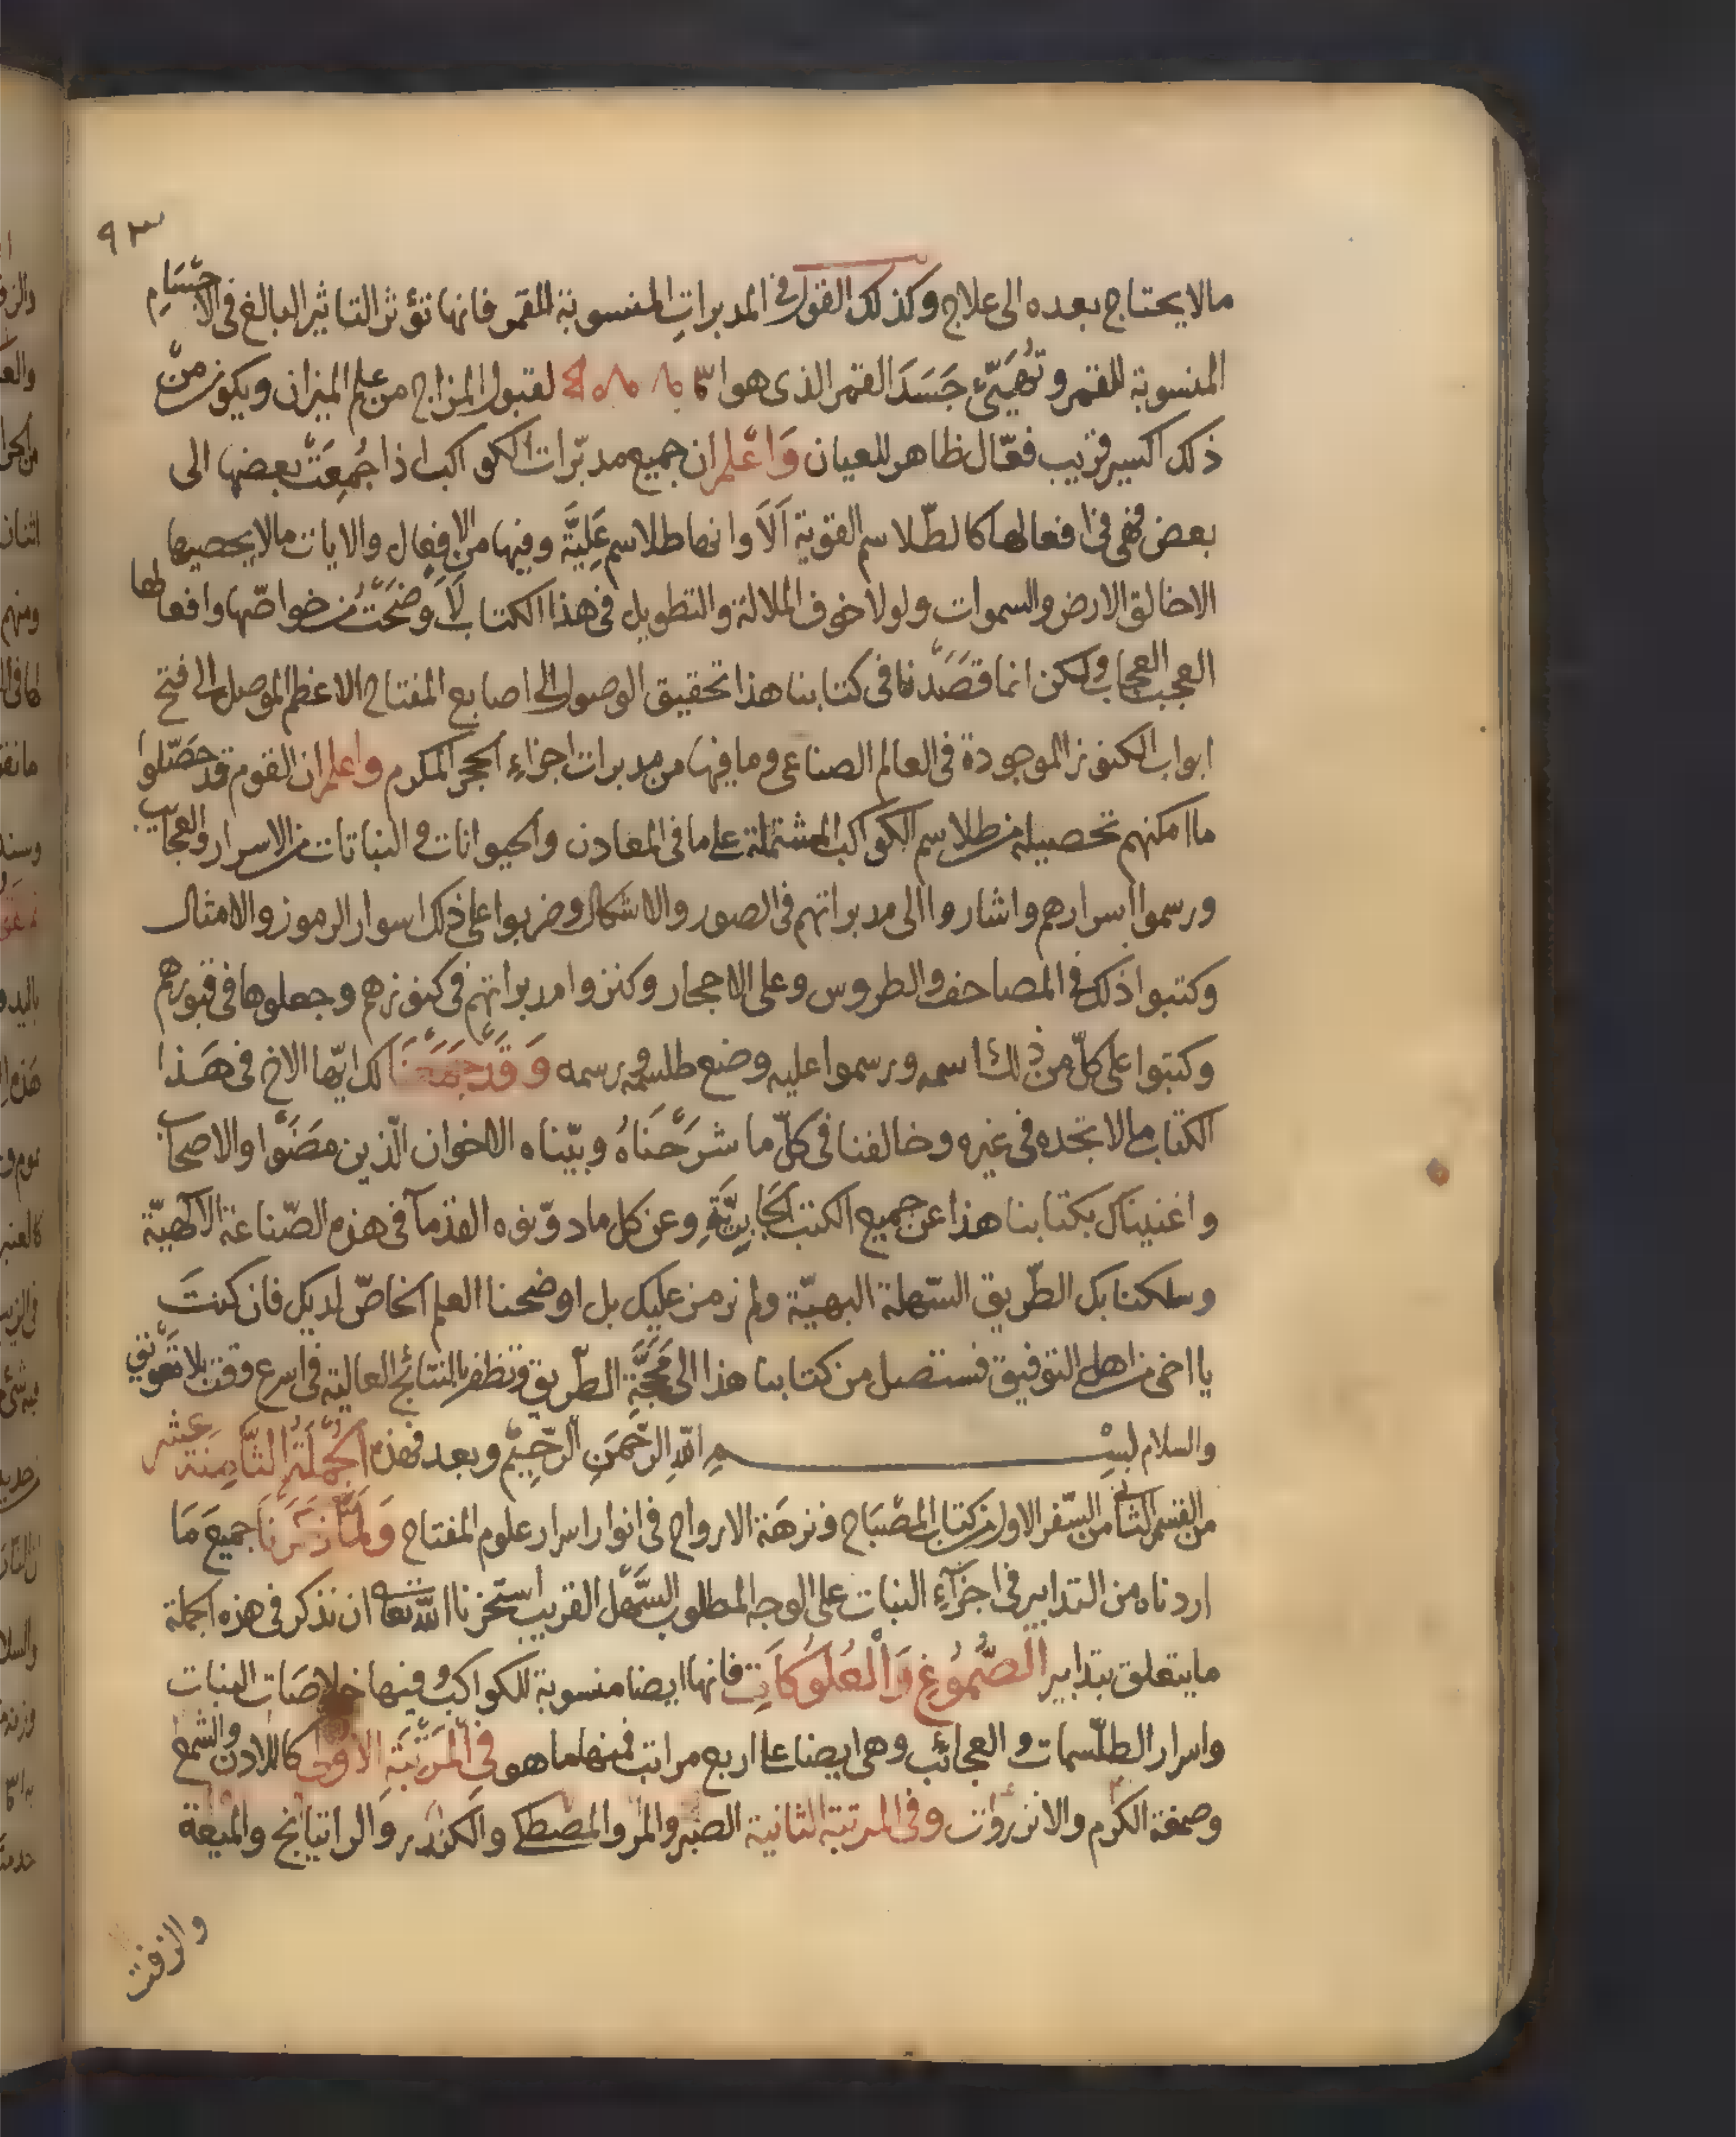 ٩٣
مالا يحتاج بعده الى علاج وكذلك القول فى المدبرات المنسوبة للقمر فانها تؤثر التاثير البالغ فى الاجسام
المنسوبة للقمر وتهيّئ جسد القمر الذى هو لقبول المزاج من علم الميزان ويكون من
ذلك اكسير قريب فعّال ظاهر للعيان واعلم ان جميع مدبّرات الكواكب اذا جُمِعَتْ بعضها الى
بعض فهى فى افعالها كالطّلاسم القوية اَلَا وانها طلاسم عَلِيَّة وفيها من الافعال والايات مالا يحصيها
الا خالق الارض والسموات ولولا خوف الملالة والتطويل فى هذا الكتاب لَاَوْضَحْتُ من خواصّها وافعالها
العجب العجاب ولكن انما قَصَدْنا فى كتابنا هذا تحقيق الوصول الى اصابع المفتاح الاعظم الموصل الى فتح
ابواب الكنوز الموجودة فى العالم الصناعى وما فيها من مدبرات اجزاءِ الحجر المكرم واعلم ان القوم قد حَصّلوا
ما امكنهم تحصيله من طلاسم الكواكب المشتملة على ما فى المعادن والحيوانات والنباتات من الاسرار والعجايب
ورسموا اسرارهم واشاروا الى مدبراتهم فى الصور والاشكال وضربوا على ذلك اسوار الرموز والامثال
وكتبوا ذلك فى المصاحف والطروس وعلى الاحجار وكنزوا مدبراتهم فى كنوزهم وجعلوها فى قبورهم
وكتبوا على كلّ من ذلك اسمه ورسموا عليه وضع طلسمه ورسمه وَقَدْ جَمَعْنَا لك ايّها الاخ فى هَذا
الكتاب مالا تجده فى غيره وخالفنا فى كلّ ما شَرَحْنَاهُ وبيّناه الاخوان الّذين مَضَوْا والاصحاب
واغنيناك بكتابنا هذا عن جميع الكتب الجَابِرِيَّةِ وعن كل ما دوّنوه القدمآ فى هذه الصّناعة الالهيّة
وسلكنا بك الطّريق السّهلة البهيّة ولم نرمز عليك بل اوضحنا العلم الخاصّ لديك فان كنتَ
يا اخى من اهل التوفيق فستصل من كتابنا هذا الى مَحَجَّةِ الطّريق وتظفر بالنتائج العالية فى اسرع وقت بلا تَعْويق
والسلام بسْمِ اللهِ الرَّحْمَنِ الرّحِيْمِ وبعد فهذه الجُمْلَةُ الثَّامِنَة عشر
من القسم الثانى من السّفر الاول من كتاب المصْبَاح ونزهَة الارواح فى انوار اسرار علوم المفتاح وَلَمَّا ذَكَرْنَا جميعَ مَا
اردناه من التدابير فى اجزآءِ النبات على الوجه المطلوب السَّهْل القريب اسْتَخَرْنا الله تعالى ان نذكر فى هذه الجملة
ما يتعلق بتدابير الصُّمُوغِ وَالْعُلُوكَاتِ فانها ايضا منسوبة للكواكب وفيها خلاصَات النبات
واسرار الطلّسمات والعجائب وهى ايضا على اربع مراتب فمنها ما هو فِى الْمَرْتَبَةِ الاولى كاللادن والشمع
وصمغة الكرم والانزروت وفى المرتبة الثانية الصبر والمر والمصطكى والكندر والراتيانج والميعة
والزفت